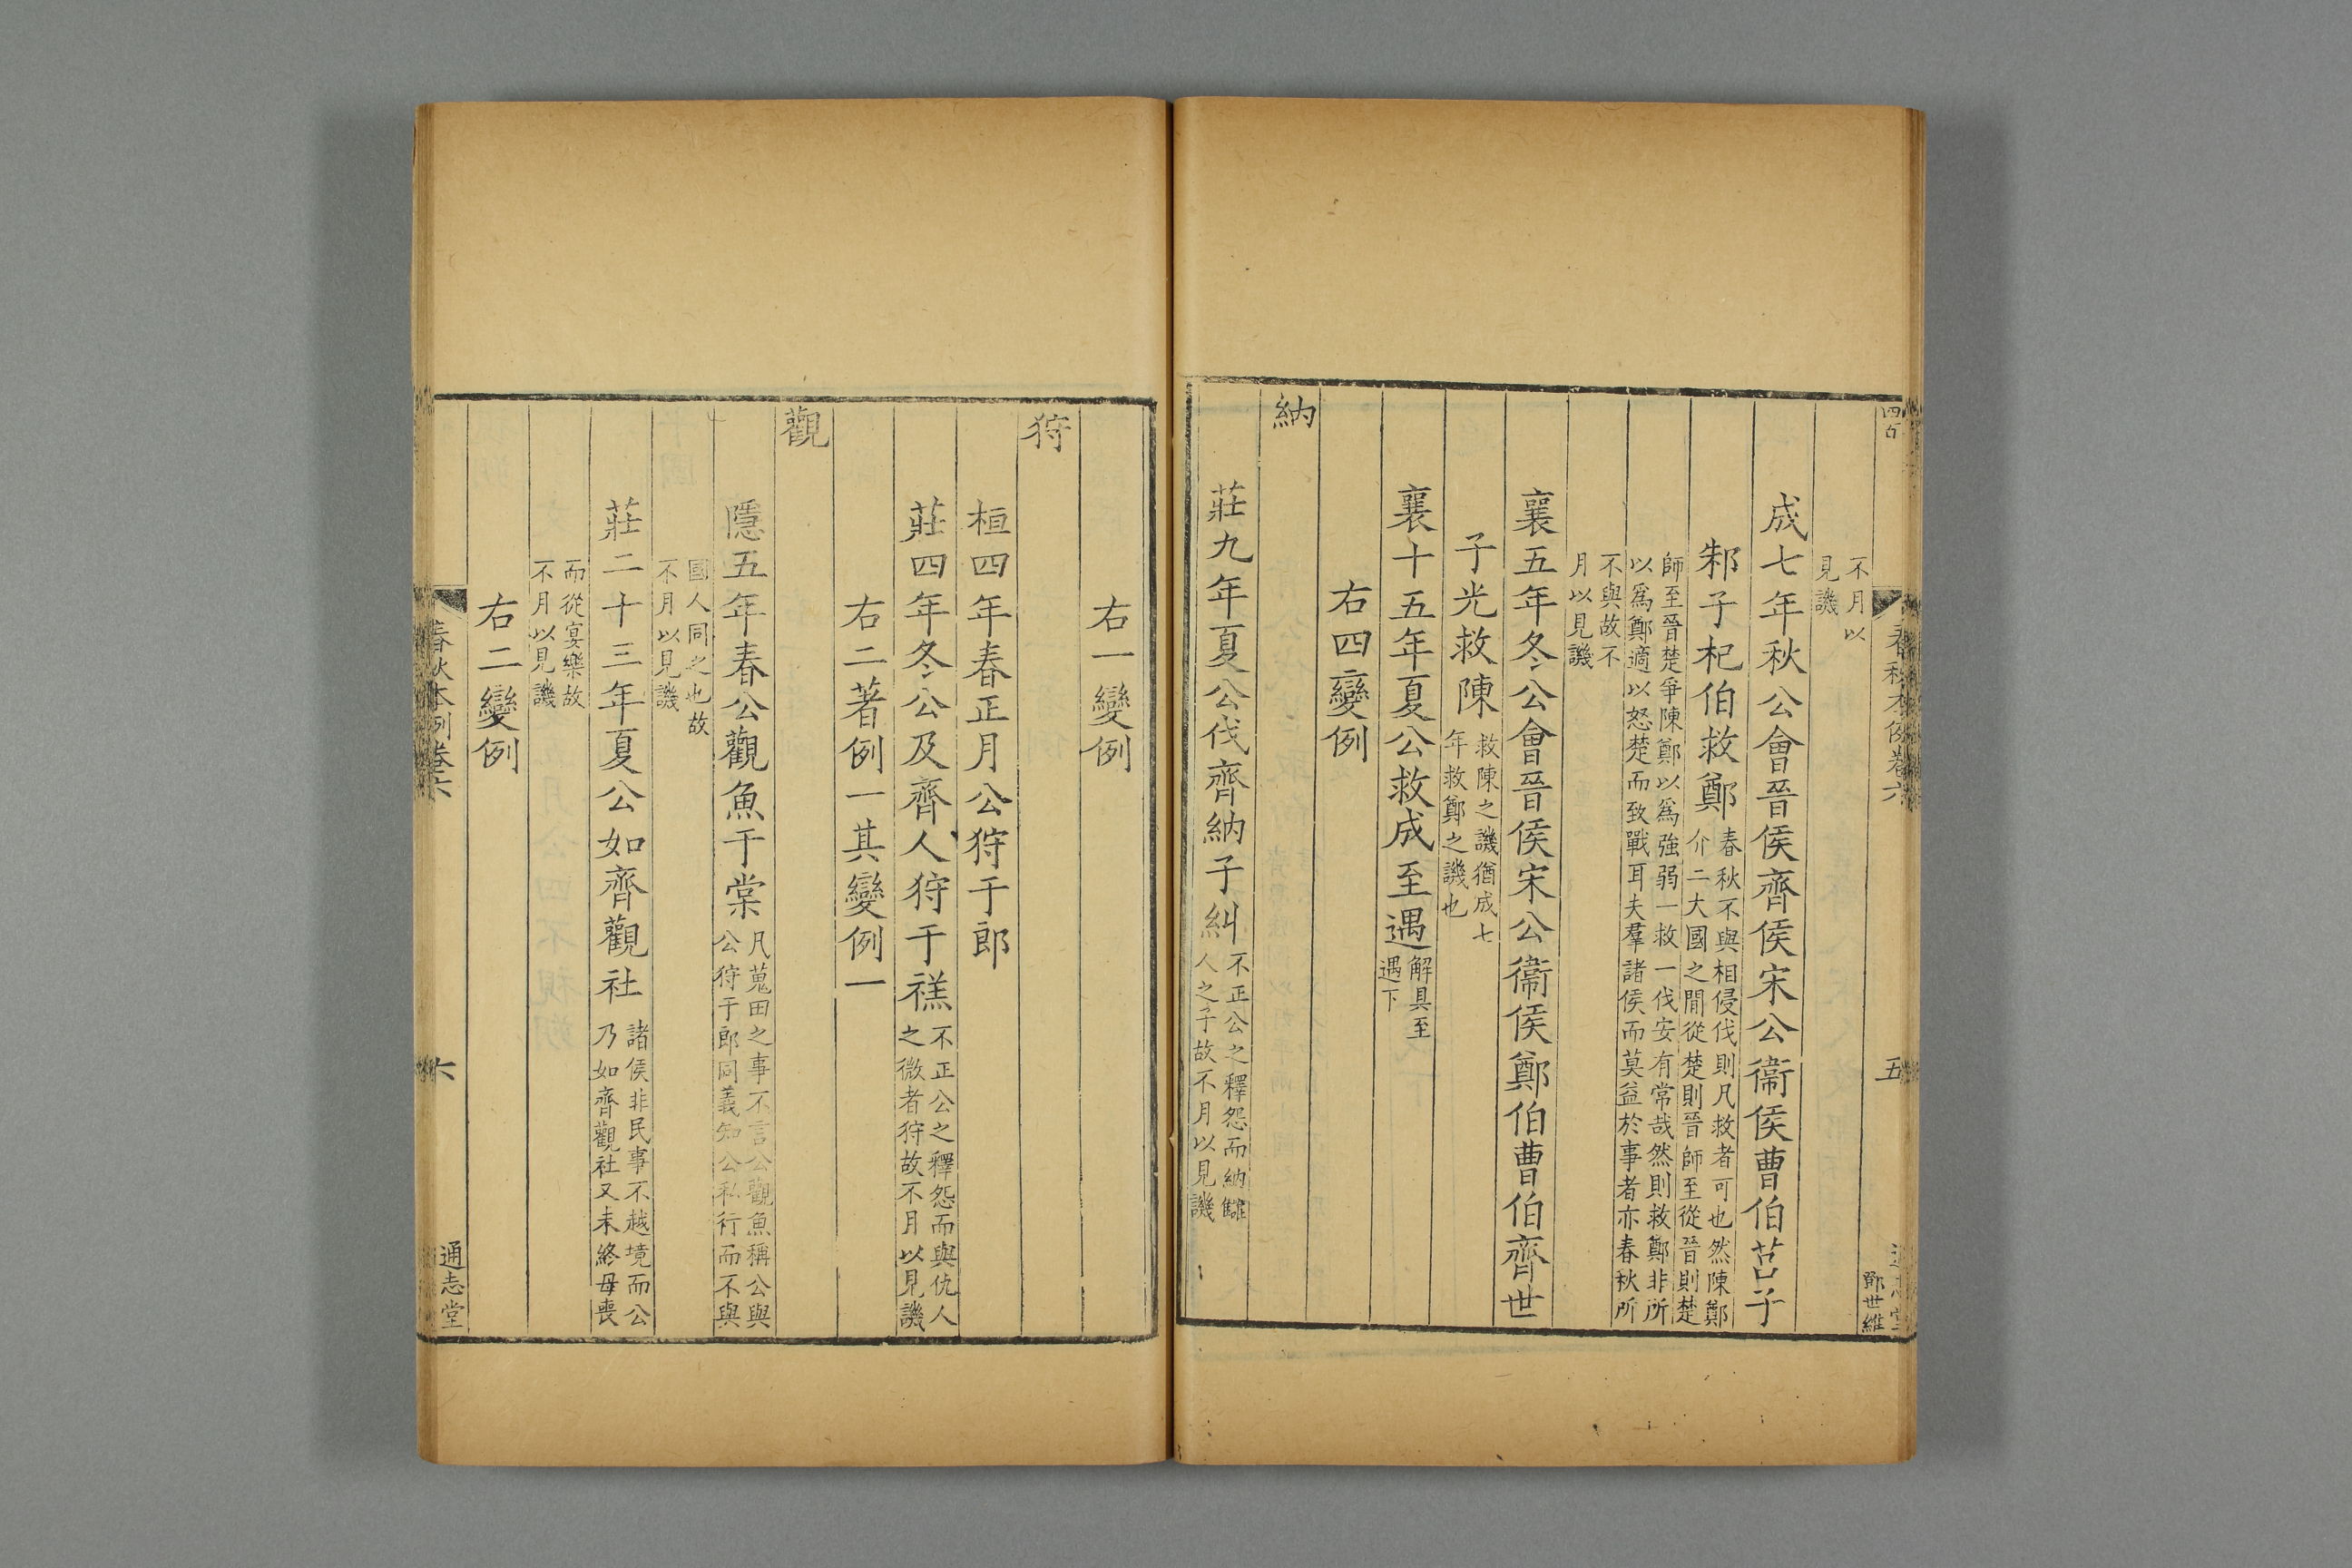 四百
春秋本例卷六
五
鄧世維
不月以
見譏
成七年秋公會晉侯齊侯宋公衞侯曹伯莒子
邾子杞伯救鄭
春秋不與相侵伐則凡救者可也然陳鄭
介二大國之閒從楚則晉師至從晉則楚
師至晉楚爭陳鄭以爲強弱一救一伐安有常哉然則救鄭非所
以爲鄭適以怒楚而致戰耳夫羣諸侯而莫益於事者亦春秋所
不與故不
月以見譏
襄五年冬公會晉侯宋公衞侯鄭伯曹伯齊世
子光救陳
救陳之譏猶成七
年救鄭之譏也
襄十五年夏公救成至遇
解具至
遇下
右四變例
納
莊九年夏公伐齊納子糾
不正公之釋怨而納讎
人之子故不月以見譏
右一變例
狩
桓四年春正月公狩于郎
莊四年冬公及齊人狩于禚
不正公之釋怨而與仇人
之微者狩故不月以見譏
右二著例一其變例一
觀
隱五年春公觀魚于棠
凡蒐田之事不言公觀魚稱公與
公狩于郎同義知公私行而不與
國人同之也故
不月以見譏
莊二十三年夏公如齊觀社
諸侯非民事不越境而公
乃如齊觀社又未終母喪
而從宴樂故
不月以見譏
右二變例
春秋本例卷六
六
通志堂